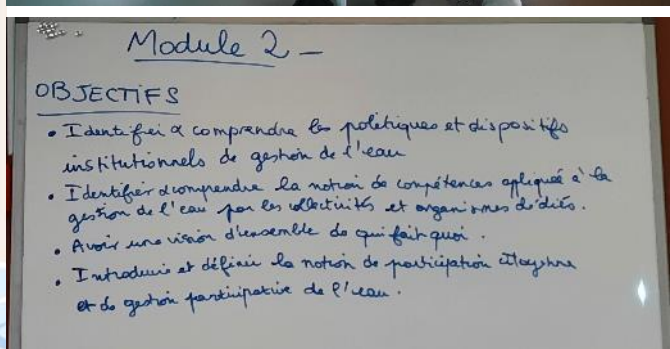 Module 2 -
OBJECTIFS
• Identifier & comprendre les politiques et dispositifs
institutionnels de gestion de l'eau
• Identifier & comprendre la notion de compétences appliquée à la
gestion de l'eau par les collectivités et organismes dédiés.
• Avoir une vision d'ensemble de qui fait quoi.
• Introduire et définir la notion de participation citoyenne
et de gestion participative de l'eau.